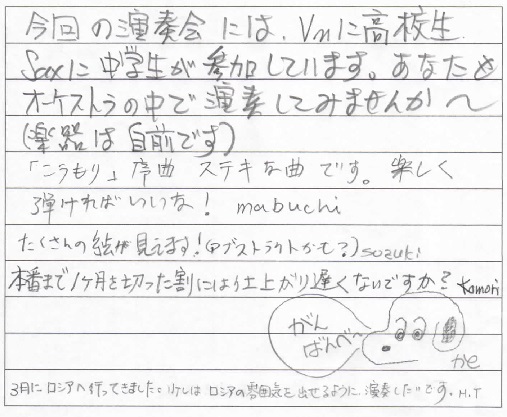 今回の演奏会には、Vnに高校生
Saxに中学生が参加しています。あなたも
オーケストラの中で演奏してみませんか～
(楽器は自前です)
「こうもり」序曲 ステキな曲です。楽しく
弾ければいいな! mabuchi
たくさんの絵が見えます!(アブストラクトかも?) suzuki
本番まで1ヶ月を切った割には仕上がり遅くないですか? Komori
がん
ばんべ～
かと
3月にロシアへ行ってきました。少しは ロシアの雰囲気を出せるように、演奏したいです。H.T